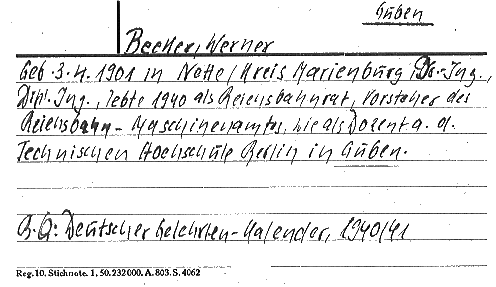 Guben
Becker, Werner
Geb. 3.4.1901 in Notte / Kreis Marienburg Dr.-Ing.,
Dipl. Ing., lebte 1940 als Reichsbahnrat, Vorsteher des
Reichsbahn-Maschinenamtes, wie als Dozent a. d.
Technischen Hochschule Berlin in Guben.
B.Q: Deutscher Gelehrten-Kalender, 1940/41
Reg. 10. Stichnote. 1, 50. 232000. A. 803. S. 4062